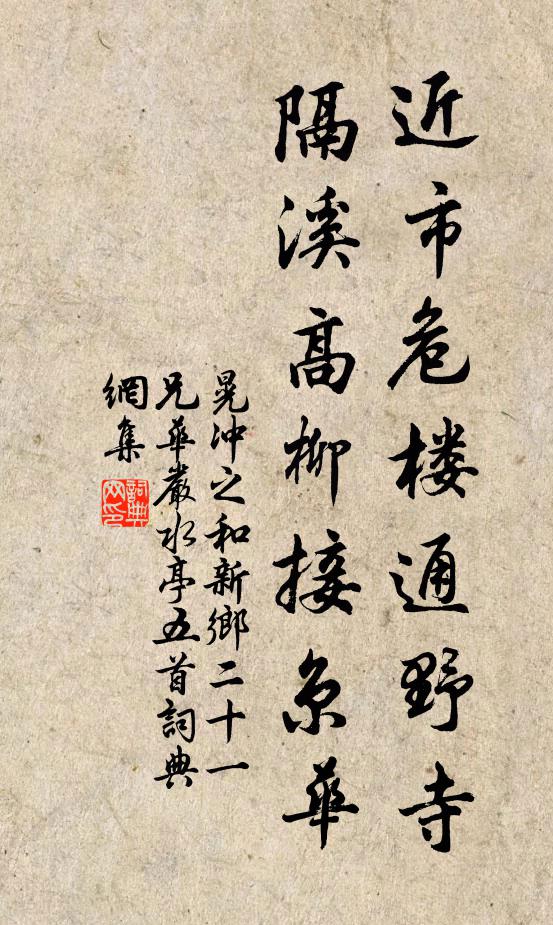 近市危楼通野寺
隔溪高柳接京華
晁冲之和新鄉二十一
兄華嚴水亭五首詞典
網集
詞典
网印